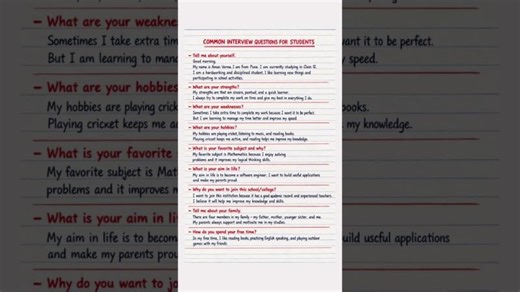 What are your weakness
Sometimes I take extra time
But I am learning to manag
What are your hobbies
My hobbies are playing crick
Playing cricket keeps me ac
What is your favorite
My favorite subject is Mat
problems and it improves m
What is your aim in life
My aim in life is to becom
and make my parents prou
Why do you want to join
COMMON INTERVIEW QUESTIONS FOR STUDENTS
– Tell me about yourself.
Good morning.
My name is Aman. I am from Pune. I am currently studying in Class
I am a hardworking and disciplined student. I like learning new things and
participating in school activities.
– What are your strengths?
My strengths are that I am sincere, punctual, and a quick learner.
I always try to complete my work on time and give my best in everything I do.
– What are your weaknesses?
Sometimes I take extra time to complete my work because I want it to be perfect.
But I am learning to manage my time better and improve my speed.
– What are your hobbies?
My hobbies are playing cricket, listening to music, and reading books.
Playing cricket keeps me active, and reading helps me improve my knowledge.
– What is your favorite subject and why?
My favorite subject is Mathematics because I enjoy solving
problems and it improves my logical thinking skills.
– What is your aim in life?
My aim in life is to become a software engineer. I want to build useful applications
and make my parents proud.
– Why do you want to join this school/college?
I want to join this institution because it has a good academic record and experienced teachers.
I believe it will help me improve my knowledge and skills.
– Tell me about your family.
There are four members in my family – my father, mother, younger sister, and me.
My parents always support and motivate me in my studies.
– How do you spend your free time?
In my free time, I like reading books, practicing English speaking, and playing outdoor
games with my friends.
want it to be perfect.
y speed.
books.
my knowledge.
uild useful applications